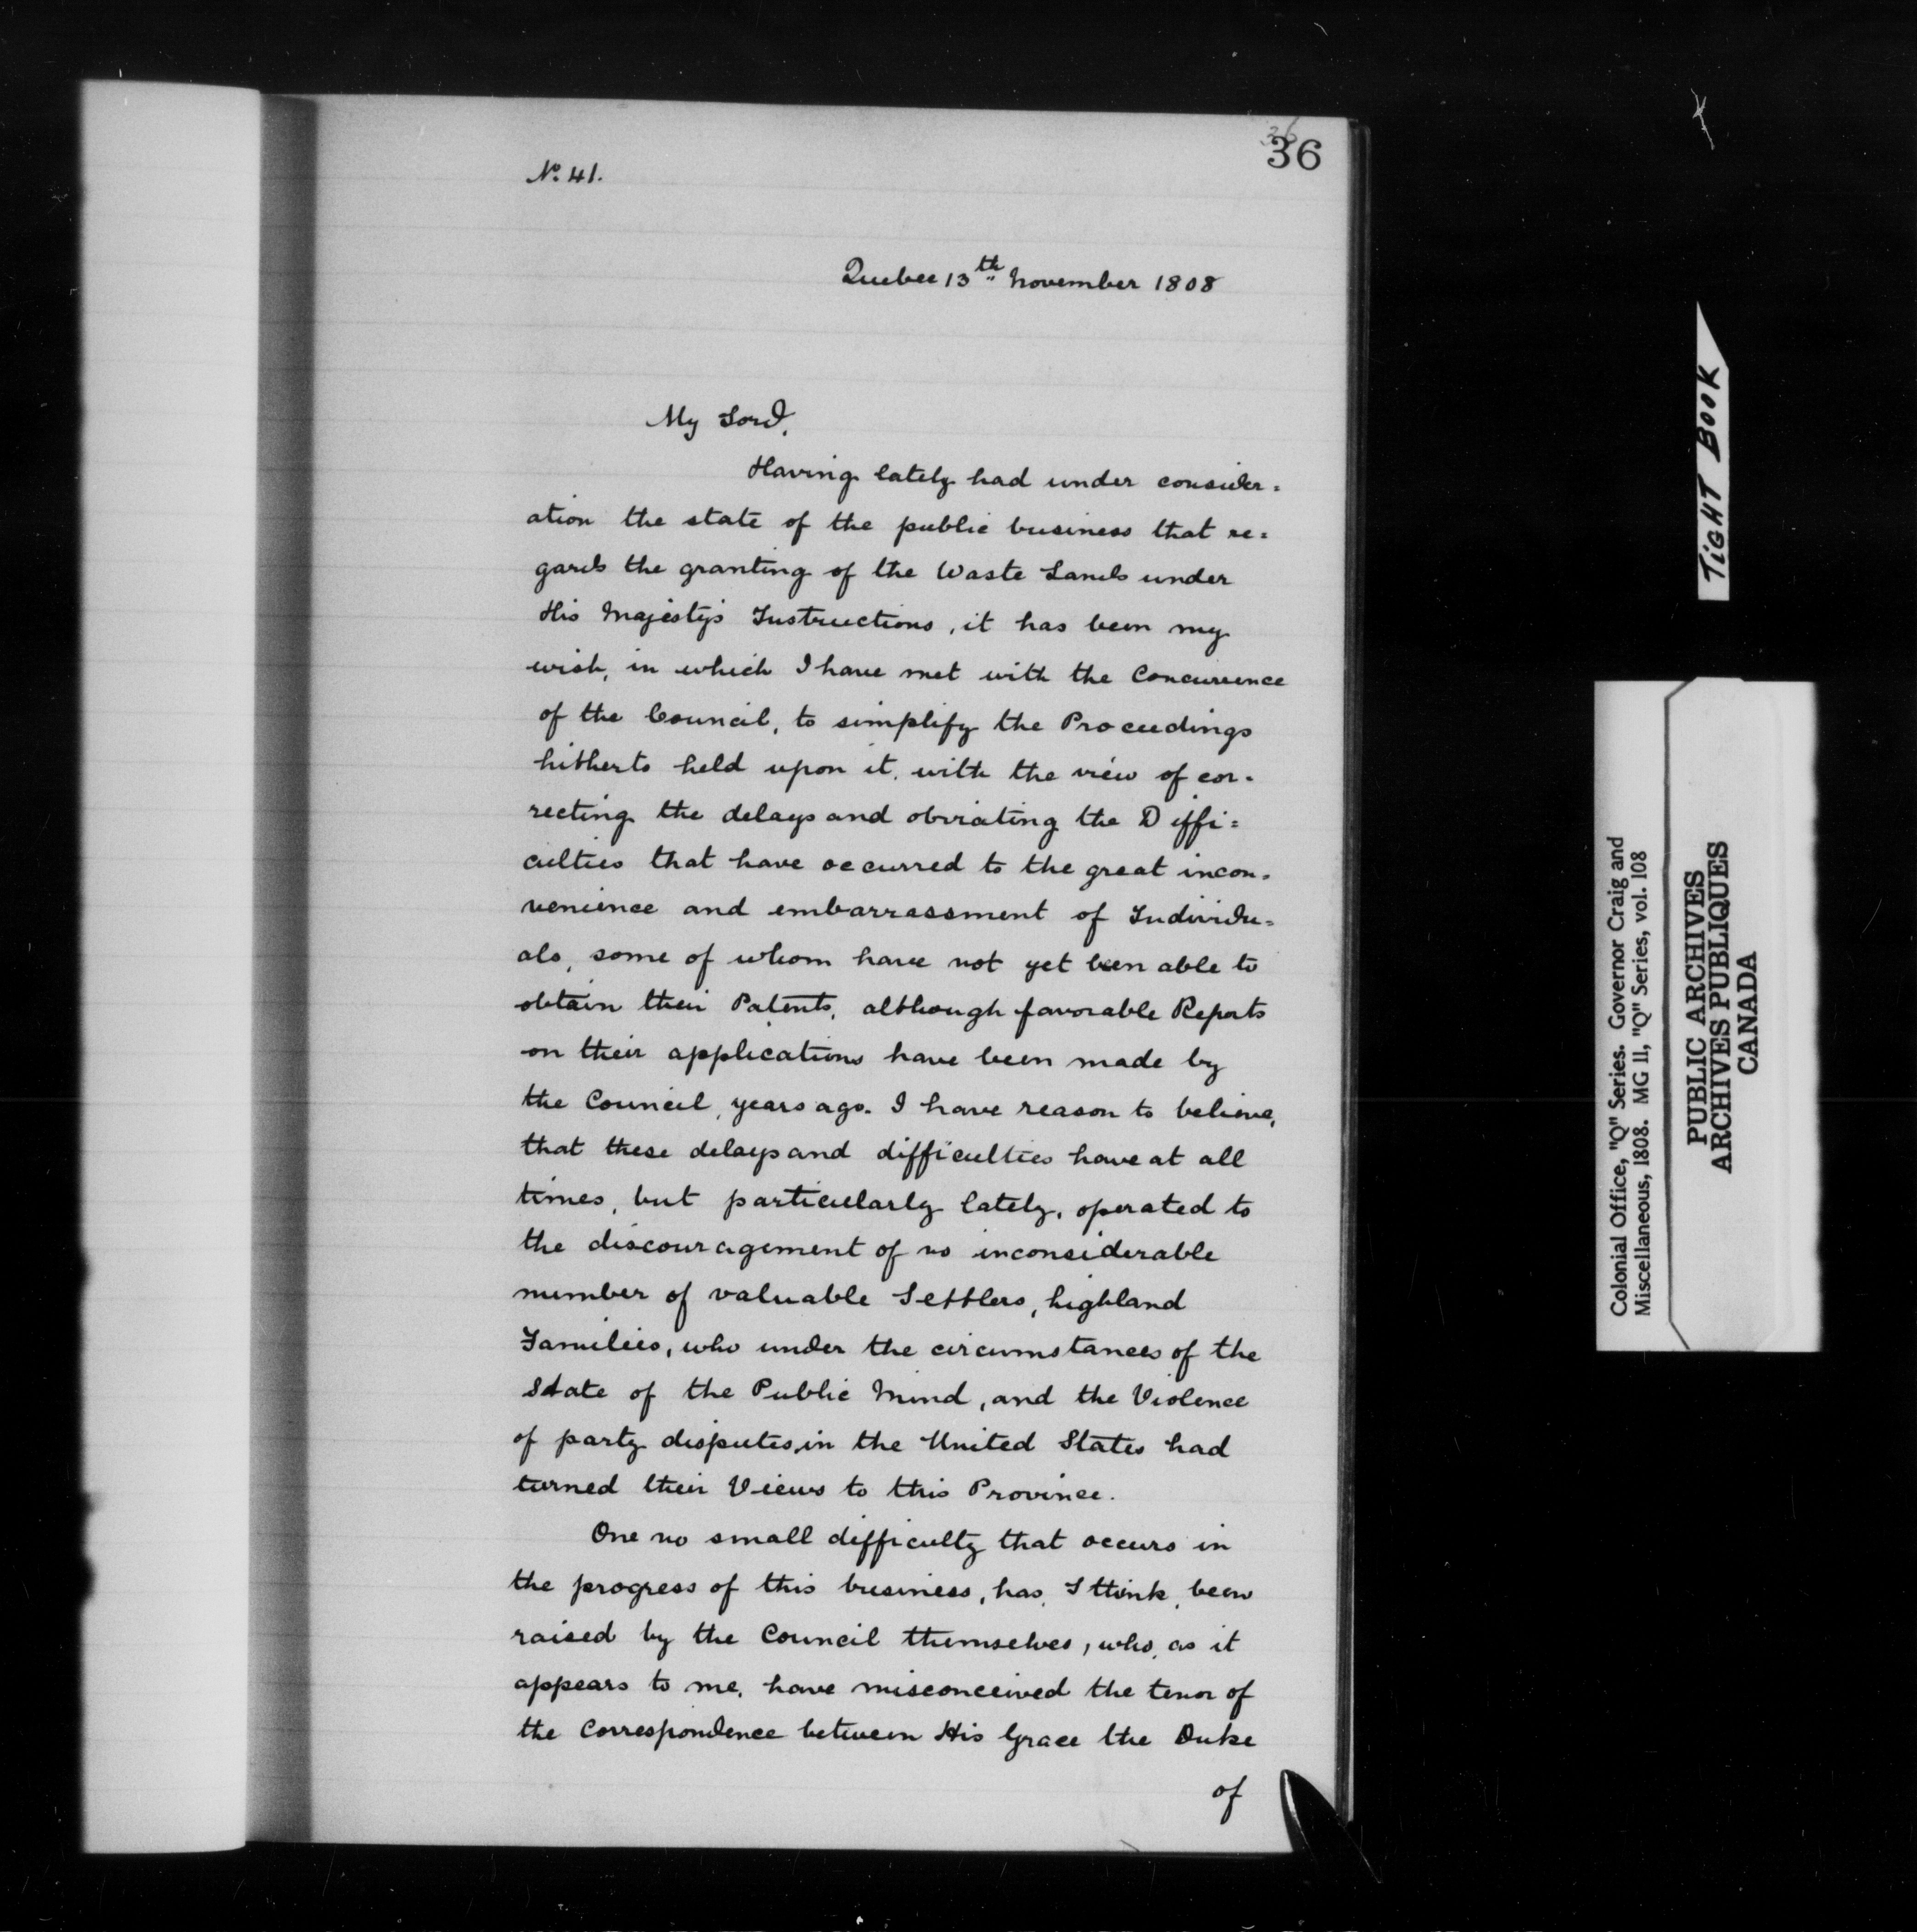 36
36
No. 41.
Quebec 13th November 1808
My Lord,
Having lately had under consider=
ation the state of the public business that re=
gards the granting of the Waste Lands under
His Majesty's Instructions, it has been my
wish, in which I have met with the Concurrence
of the Council, to simplify the Proceedings
hitherto held upon it, with the view of cor-
recting the delays and obviating the Diffi=
culties that have occurred to the great incon-
venience and embarrassment of Individu=
als, some of whom have not yet been able to
obtain their Patents, although favorable Reports
on their applications have been made by
the Council, years ago. I have reason to believe,
that these delays and difficulties have at all
times, but particularly lately, operated to
the discouragement of no inconsiderable
number of valuable Settlers, highland
Families, who under the circumstances of the
State of the Public Mind, and the Violence
of party disputes, in the United States had
turned their Views to this Province.
One no small difficulty that occurs in
the progress of this business, has, I think, been
raised by the Council themselves, who, as it
appears to me, have misconceived the tenor of
the Correspondence between His Grace the Duke
of
TIGHT BOOK
Colonial Office, "Q" Series. Governor Craig and
Miscellaneous, 1808. MG 11, "Q" Series, vol. 108
PUBLIC ARCHIVES
ARCHIVES PUBLIQUES
CANADA